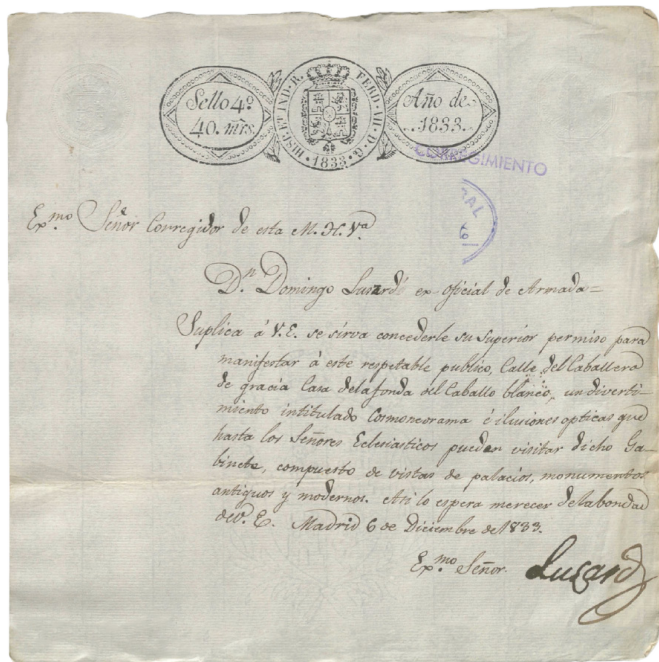 Sello 4º
40. mrs.
HISP. ET IND. R. FERD. VII. D. G.
·1833·
Año de
.1833.
CORREGIMIENTO
RAL
Exmo. Señor Corregidor de esta M. H. Va.
Dn. Domingo Lusardi ex oficial de Armada=
Suplica á V.E. se sirva concederle su Superior permiso para
manifestar á este respetable publico, Calle del Caballero
de gracia Casa dela fonda del Caballo blanco, un diverti-
miento intitulado Cosmoneorama é ilusiones opticas que
hasta los Señores Eclesiasticos pueden visitar dicho Ga-
binete, compuesto de vistas de palacios, monumentos
antiguos y modernos. Asi lo espera merecer dela bondad
de V. E. Madrid 6 de Diciembre de 1833.
Exmo. Señor Lusardi